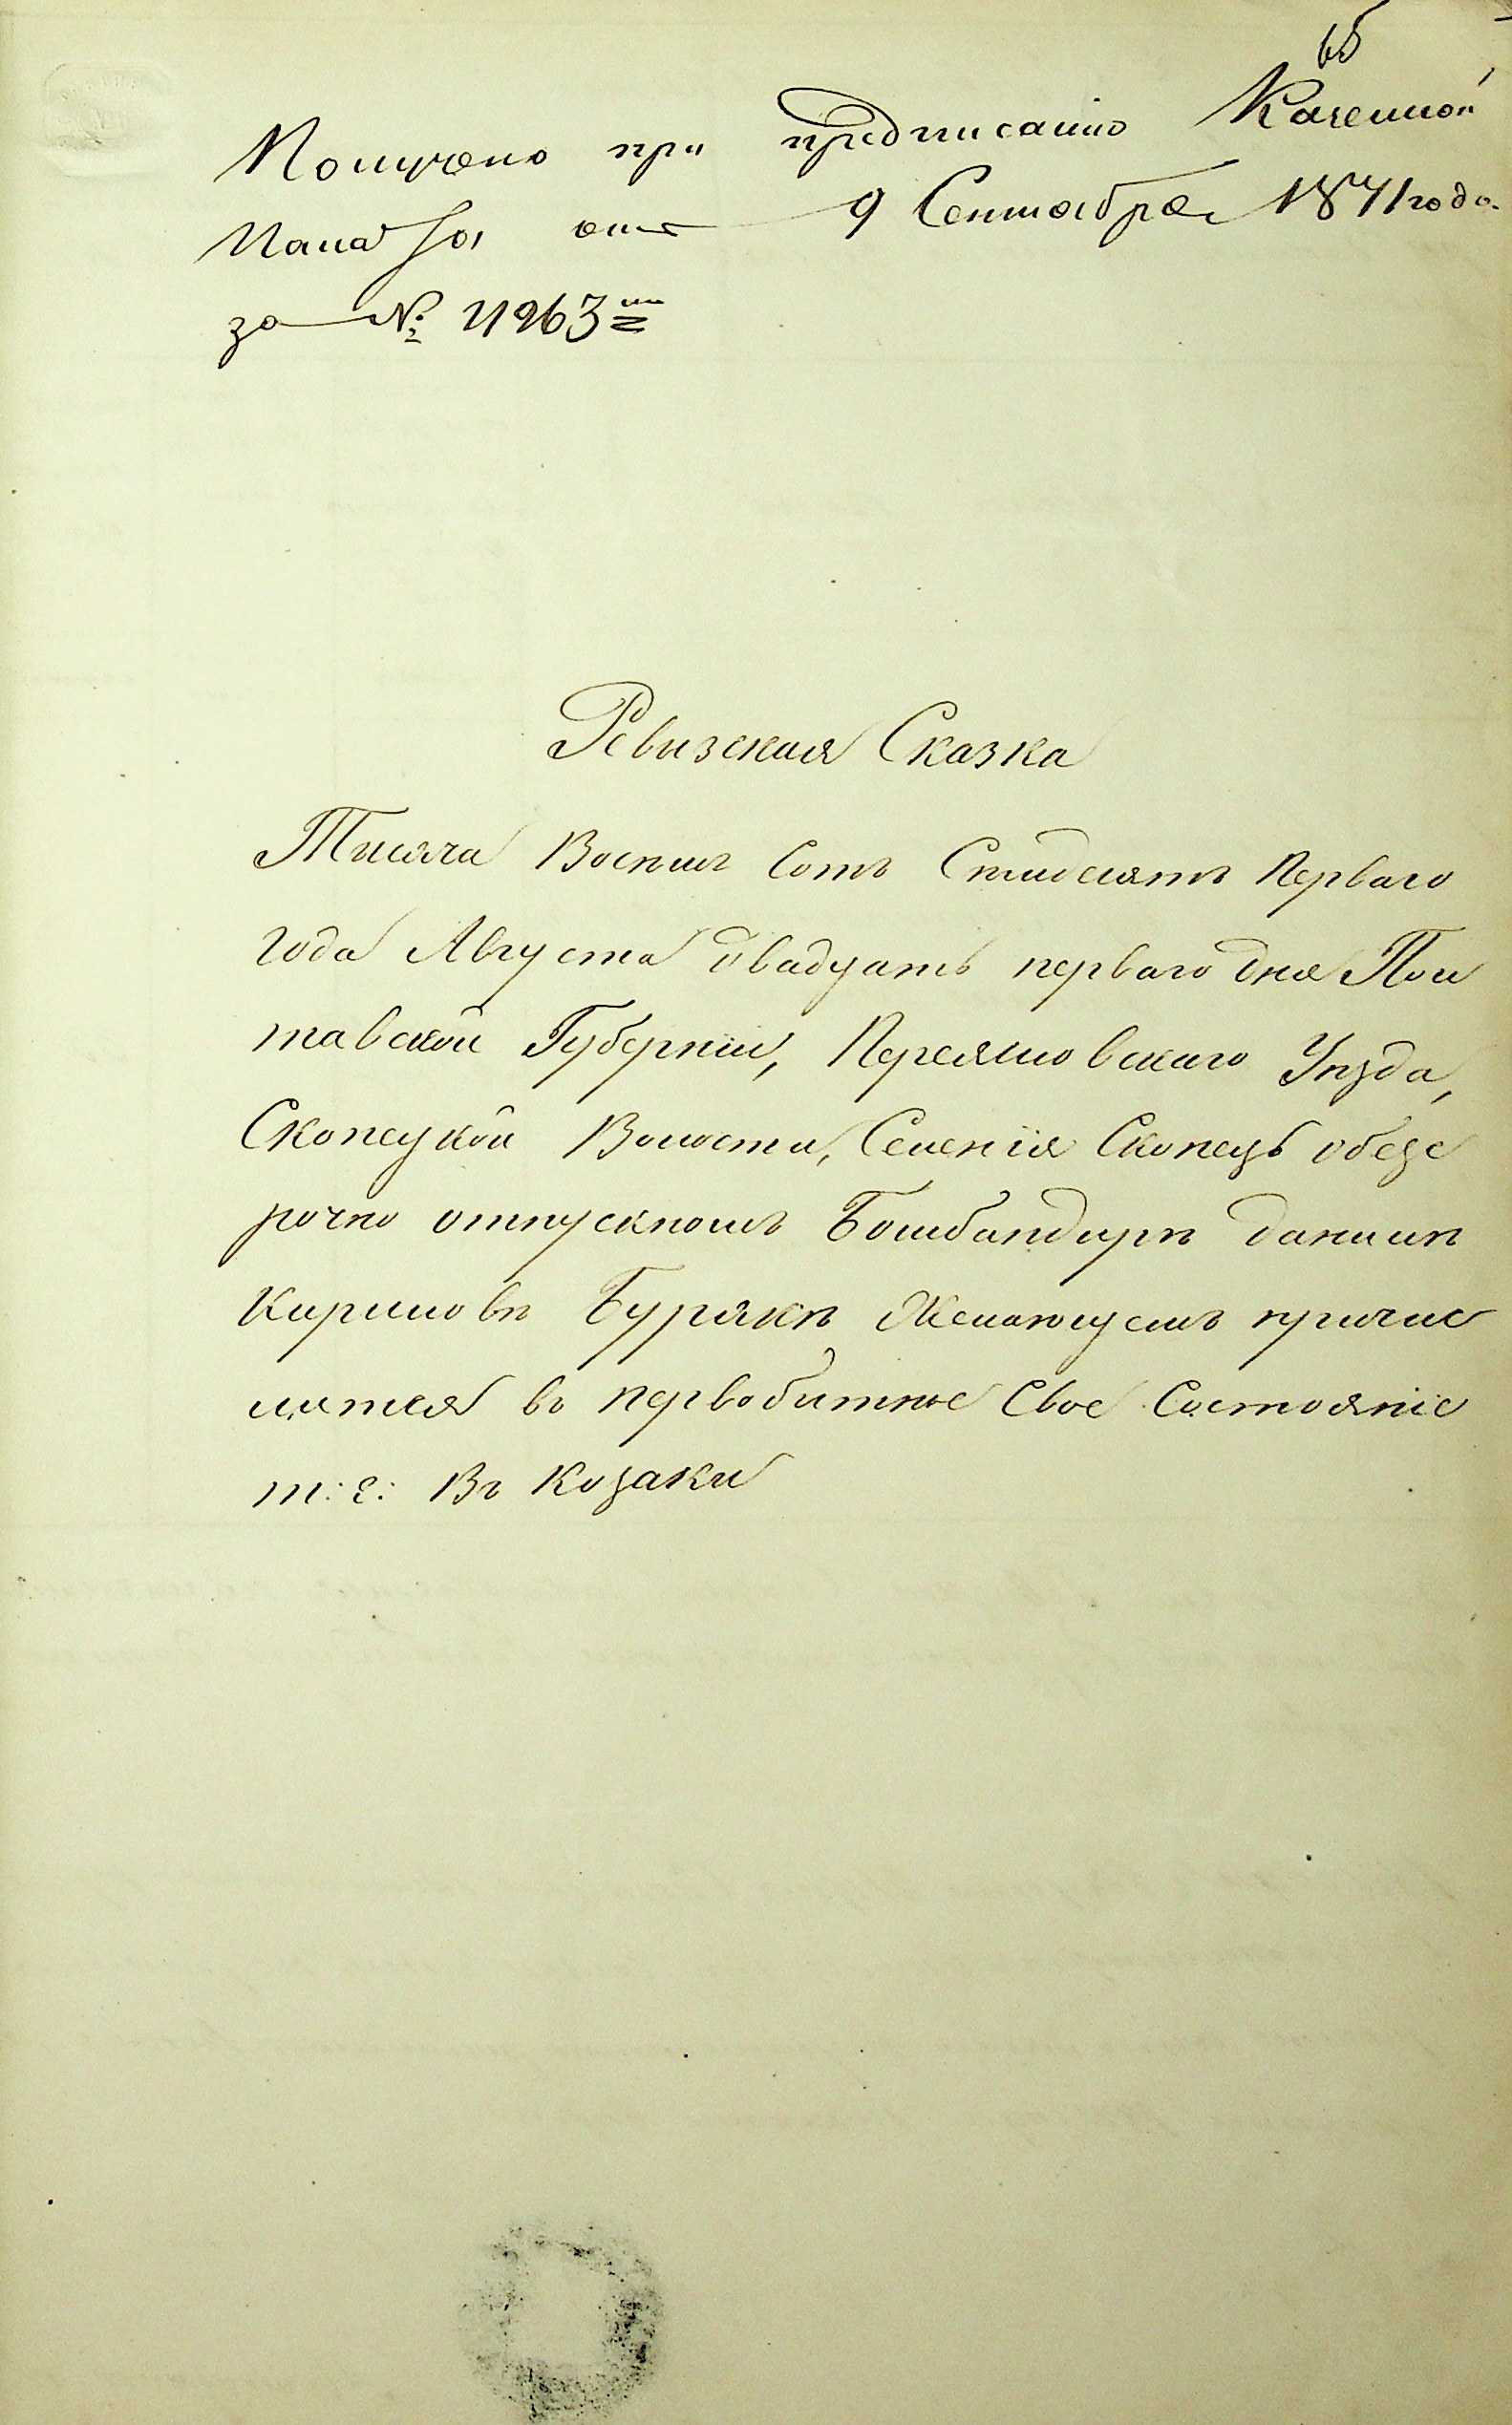 65
Получено при предписанію Казенной
Палаты отъ 9 Сентября 1871 года
за № 21263
Ревизская Сказка
Тисяча Восемъ Сотъ Симдесятъ Перваго
года Августа двадцать перваго дня Пол
тавской Губерніи, Переясловскаго Уѣзда,
Скопецкой Волости, Селенія Скопецъ о безс
рочно отпускномъ Бомбандирѣ Данилѣ
Кириловѣ Бурякѣ Желающемъ причис
литься въ первобитное Свое Состояніе
т: е: Въ Козаки